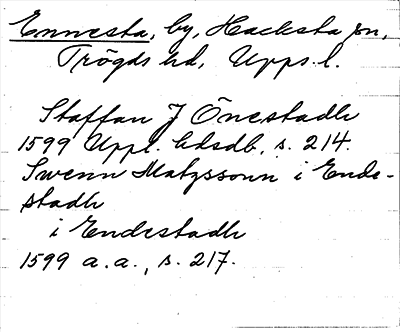 Ennesta, by, Hacksta sn,
Trögds hd, Upps. l.
Staffan J Önestadh
1599 Uppl. hdsdb, s. 214.
Swenn Matzsonn i Ende-
stadh
i Endestadh
1599 a. a., s. 217.